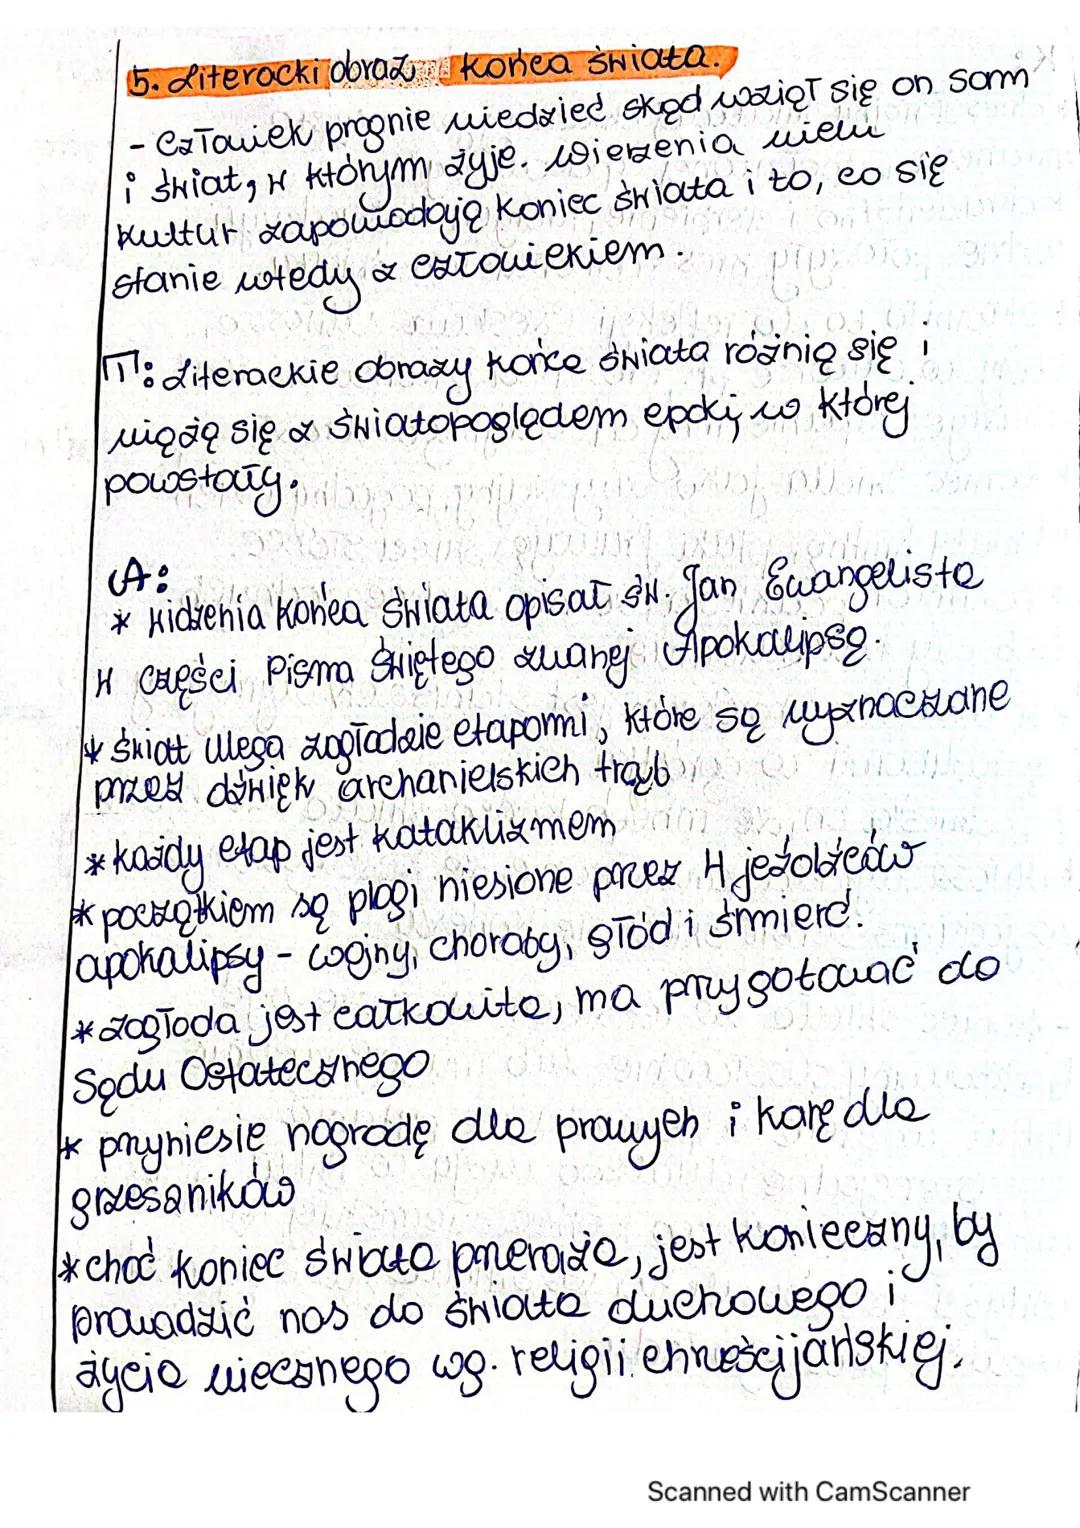 5. Literacki obraz końca świata.
- Człowiek pragnie wiedzieć skąd wziął się on sam
i świat, w którym żyje. Wierzenia wielu
kultur zapowiadają koniec świata i to, co się
stanie wtedy z człowiekiem.
T: Literackie obrazy końca świata różnią się i
wiążą się z światopoglądem epoki, w której
powstały.
A:
* widzenia końca świata opisał św. Jan Ewangelista
w części Pisma Świętego zwanej Apokalipsą.
* świat ulega zagładzie etapami, które są wyznaczane
przez dźwięk archanielskich trąb
* każdy etap jest kataklizmem
* początkiem są plagi niesione przez 4 jeźdźców
apokalipsy - wojny, choroby, głód i śmierć.
* zagłada jest całkowita, ma przygotować do
Sądu Ostatecznego
* przyniesie nagrodę dla prawych i karę dla
grzeszników
* choć koniec świata przeraża, jest konieczny, by
prowadzić nas do świata duchowego i
życia wiecznego wg. religii chrześcijańskiej.
Scanned with CamScanner